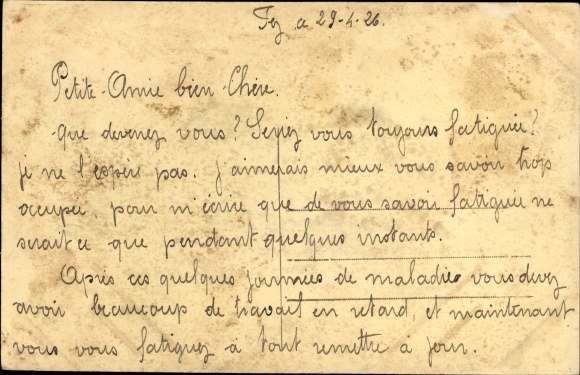 Fez le 29-4-26.
Petite Amie bien Chère.
-que devenez vous? Seriez vous toujours fatiguée?
je ne l'espère pas. J'aimerais mieux vous savoir trop
occupée, pour m'écrire que de vous savoir fatiguée ne
serait ce que pendant quelques instants.
Après ces quelques journées de maladie vous devez
avoir beaucoup de travail en retard, et maintenant
vous vous fatiguez à tout remettre à jour.